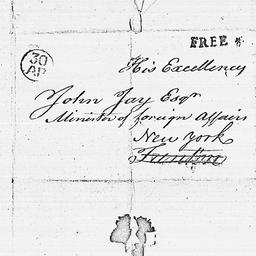 FREE
30
AP
His Excellency
John Jay Esqr
Minister of foreign Affairs
New York
Trenton